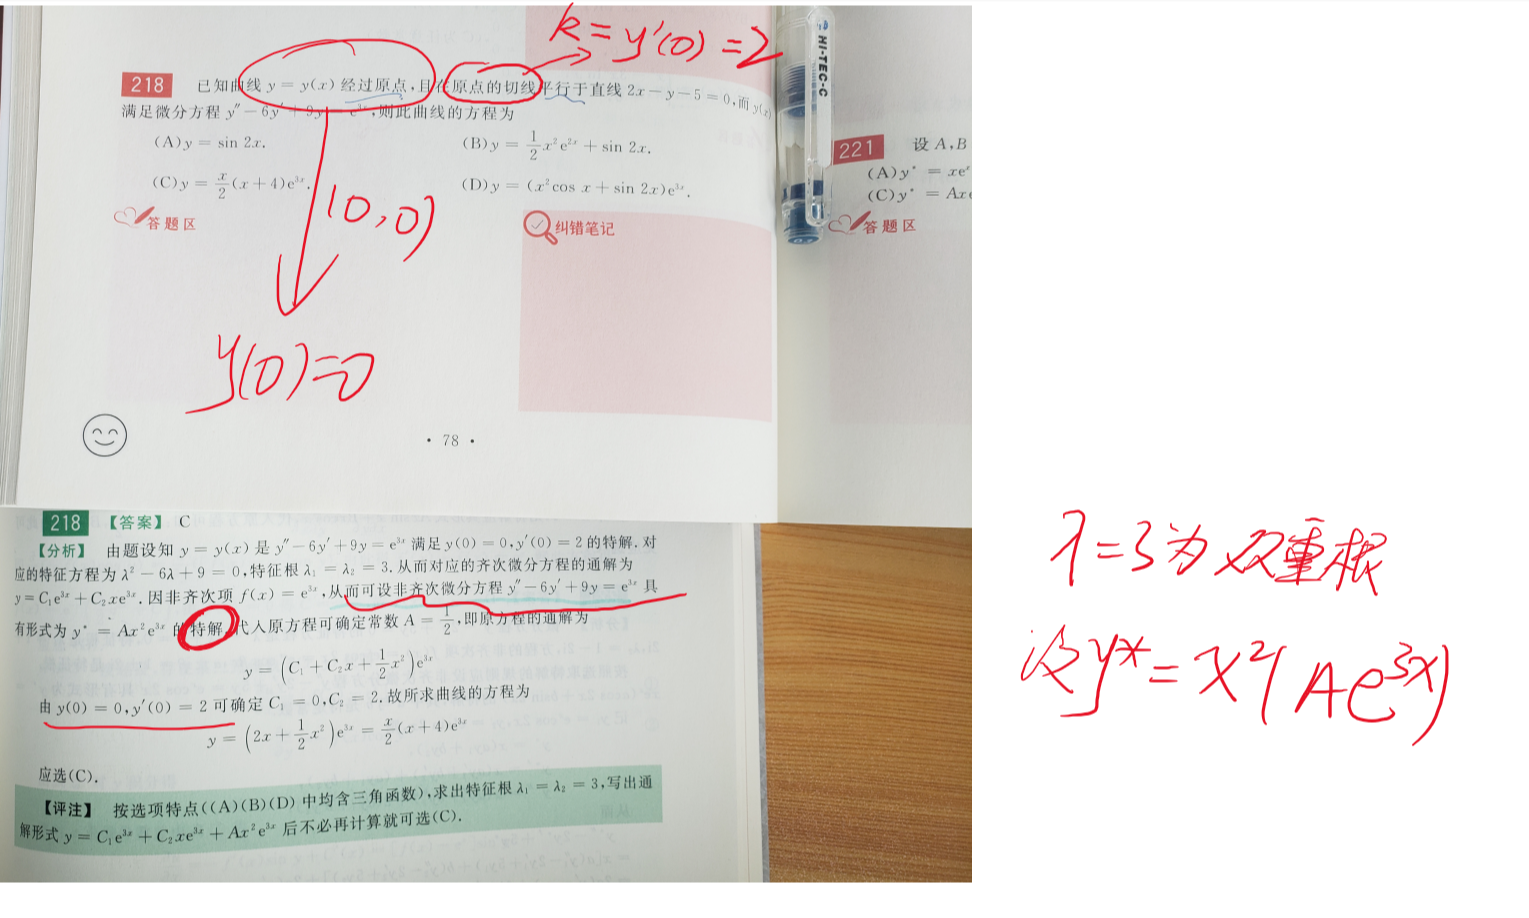 k = y'(0) = 2
HI-TEC-C
218 已知曲线 y = y(x) 经过原点,且在原点的切线平行于直线 2x − y − 5 = 0,而 y(x)
满足微分方程 y″ − 6y′ + 9y = e³ˣ,则此曲线的方程为
(A)y = sin 2x. (B)y = 1/2 x²e²ˣ + sin 2x.
(C)y = x/2 (x + 4)e³ˣ. (D)y = (x²cos x + sin 2x)e³ˣ.
答题区
纠错笔记
(0,0)
y(0)=0
· 78 ·
221 设 A,B
(A)y* = xe
(C)y* = Ax
答题区
218 【答案】 C
【分析】 由题设知 y = y(x) 是 y″ − 6y′ + 9y = e³ˣ 满足 y(0) = 0,y′(0) = 2 的特解.对
应的特征方程为 λ² − 6λ + 9 = 0,特征根 λ₁ = λ₂ = 3.从而对应的齐次微分方程的通解为
y = C₁e³ˣ + C₂xe³ˣ.因非齐次项 f(x) = e³ˣ,从而可设非齐次微分方程 y″ − 6y′ + 9y = e³ˣ 具
有形式为 y* = Ax²e³ˣ 的特解,代入原方程可确定常数 A = 1/2,即原方程的通解为
y = (C₁ + C₂x + 1/2 x²)e³ˣ
由 y(0) = 0,y′(0) = 2 可确定 C₁ = 0,C₂ = 2.故所求曲线的方程为
y = (2x + 1/2 x²)e³ˣ = x/2 (x + 4)e³ˣ
应选(C).
【评注】 按选项特点((A)(B)(D) 中均含三角函数),求出特征根 λ₁ = λ₂ = 3,写出通
解形式 y = C₁e³ˣ + C₂xe³ˣ + Ax²e³ˣ 后不必再计算就可选(C).
λ=3为双重根
设y*= x²(Ae³ˣ)